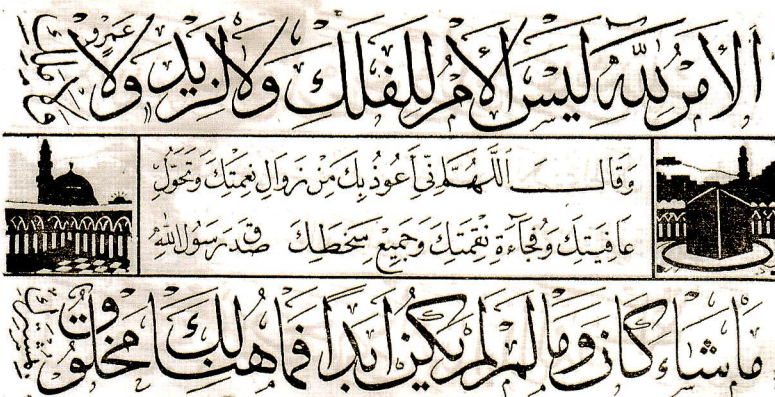 الأمرُ للهِ ليسَ الأمرُ للفلكِ ولا لزيدٍ ولا عمرو ولا ملكِ
وقال اللّهُمَّ إنّي أعوذُ بِكَ مِنْ زَوالِ نِعمتِكَ وتحوُّلِ
عافيتِكَ وفُجاءَةِ نِقمتِكَ وجميعِ سخطِكَ صدق رسول الله
ما شاءَ كانَ وما لم يكنْ أبدًا فما هنالكَ مخلوقٌ